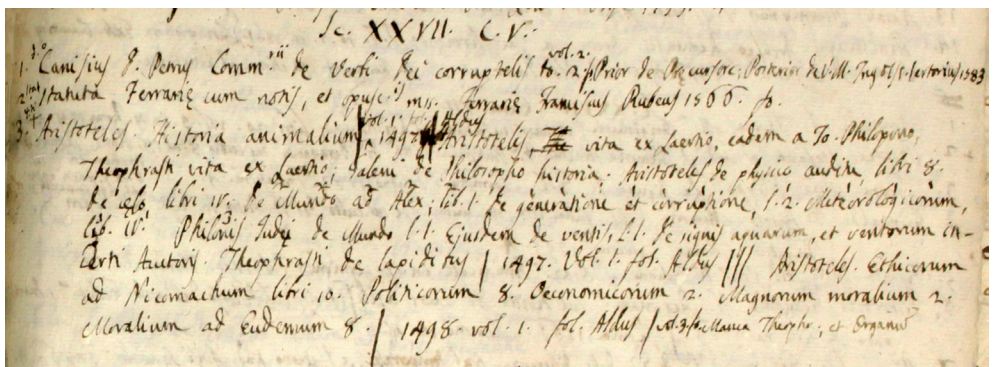 Sc. XXVII. C. V.
1. Canisius P. Petrus Comm.rii de Verbi Dei corruptelis to. 2. vol. 2. Prior de Præcursore; Posterior de V. M. Ingolst. Sartorius 1583
2. Statuta Ferrariæ cum notis, et opusc.is mss. Ferrariæ Franciscus Rubeus 1566. fo.
3. Aristoteles. Historia animalium | vol. 1. fol. 1497 Aldus Aristotelis vita ex Laertio, eadem a Io. Philopono,
Theophrasti vita ex Laertio; Galeni de Philosopho historia. Aristoteles de physico auditu, libri 8.
de cælo, libri IV. de Mundo ad Alex; lib. 1. de generatione et corruptione, l. 2. Meteorologicorum,
lib. IV. Philonis Iudei de Mundo l. 1. Ejusdem de ventis, l. 1. de signis aquarum, et ventorum in-
certi Auctoris. Theophrasti de lapidibus | 1497. Vol. 1. fol. Aldus ||| Aristoteles. Ethicorum
ad Nicomachum libri 10. Politicorum 8. Oeconomicorum 2. Magnorum moralium 2.
Moralium ad Eudemium 8. | 1498. vol. 1. fol. Aldus | vol. 3. fo. Manca Theophr., et Organū